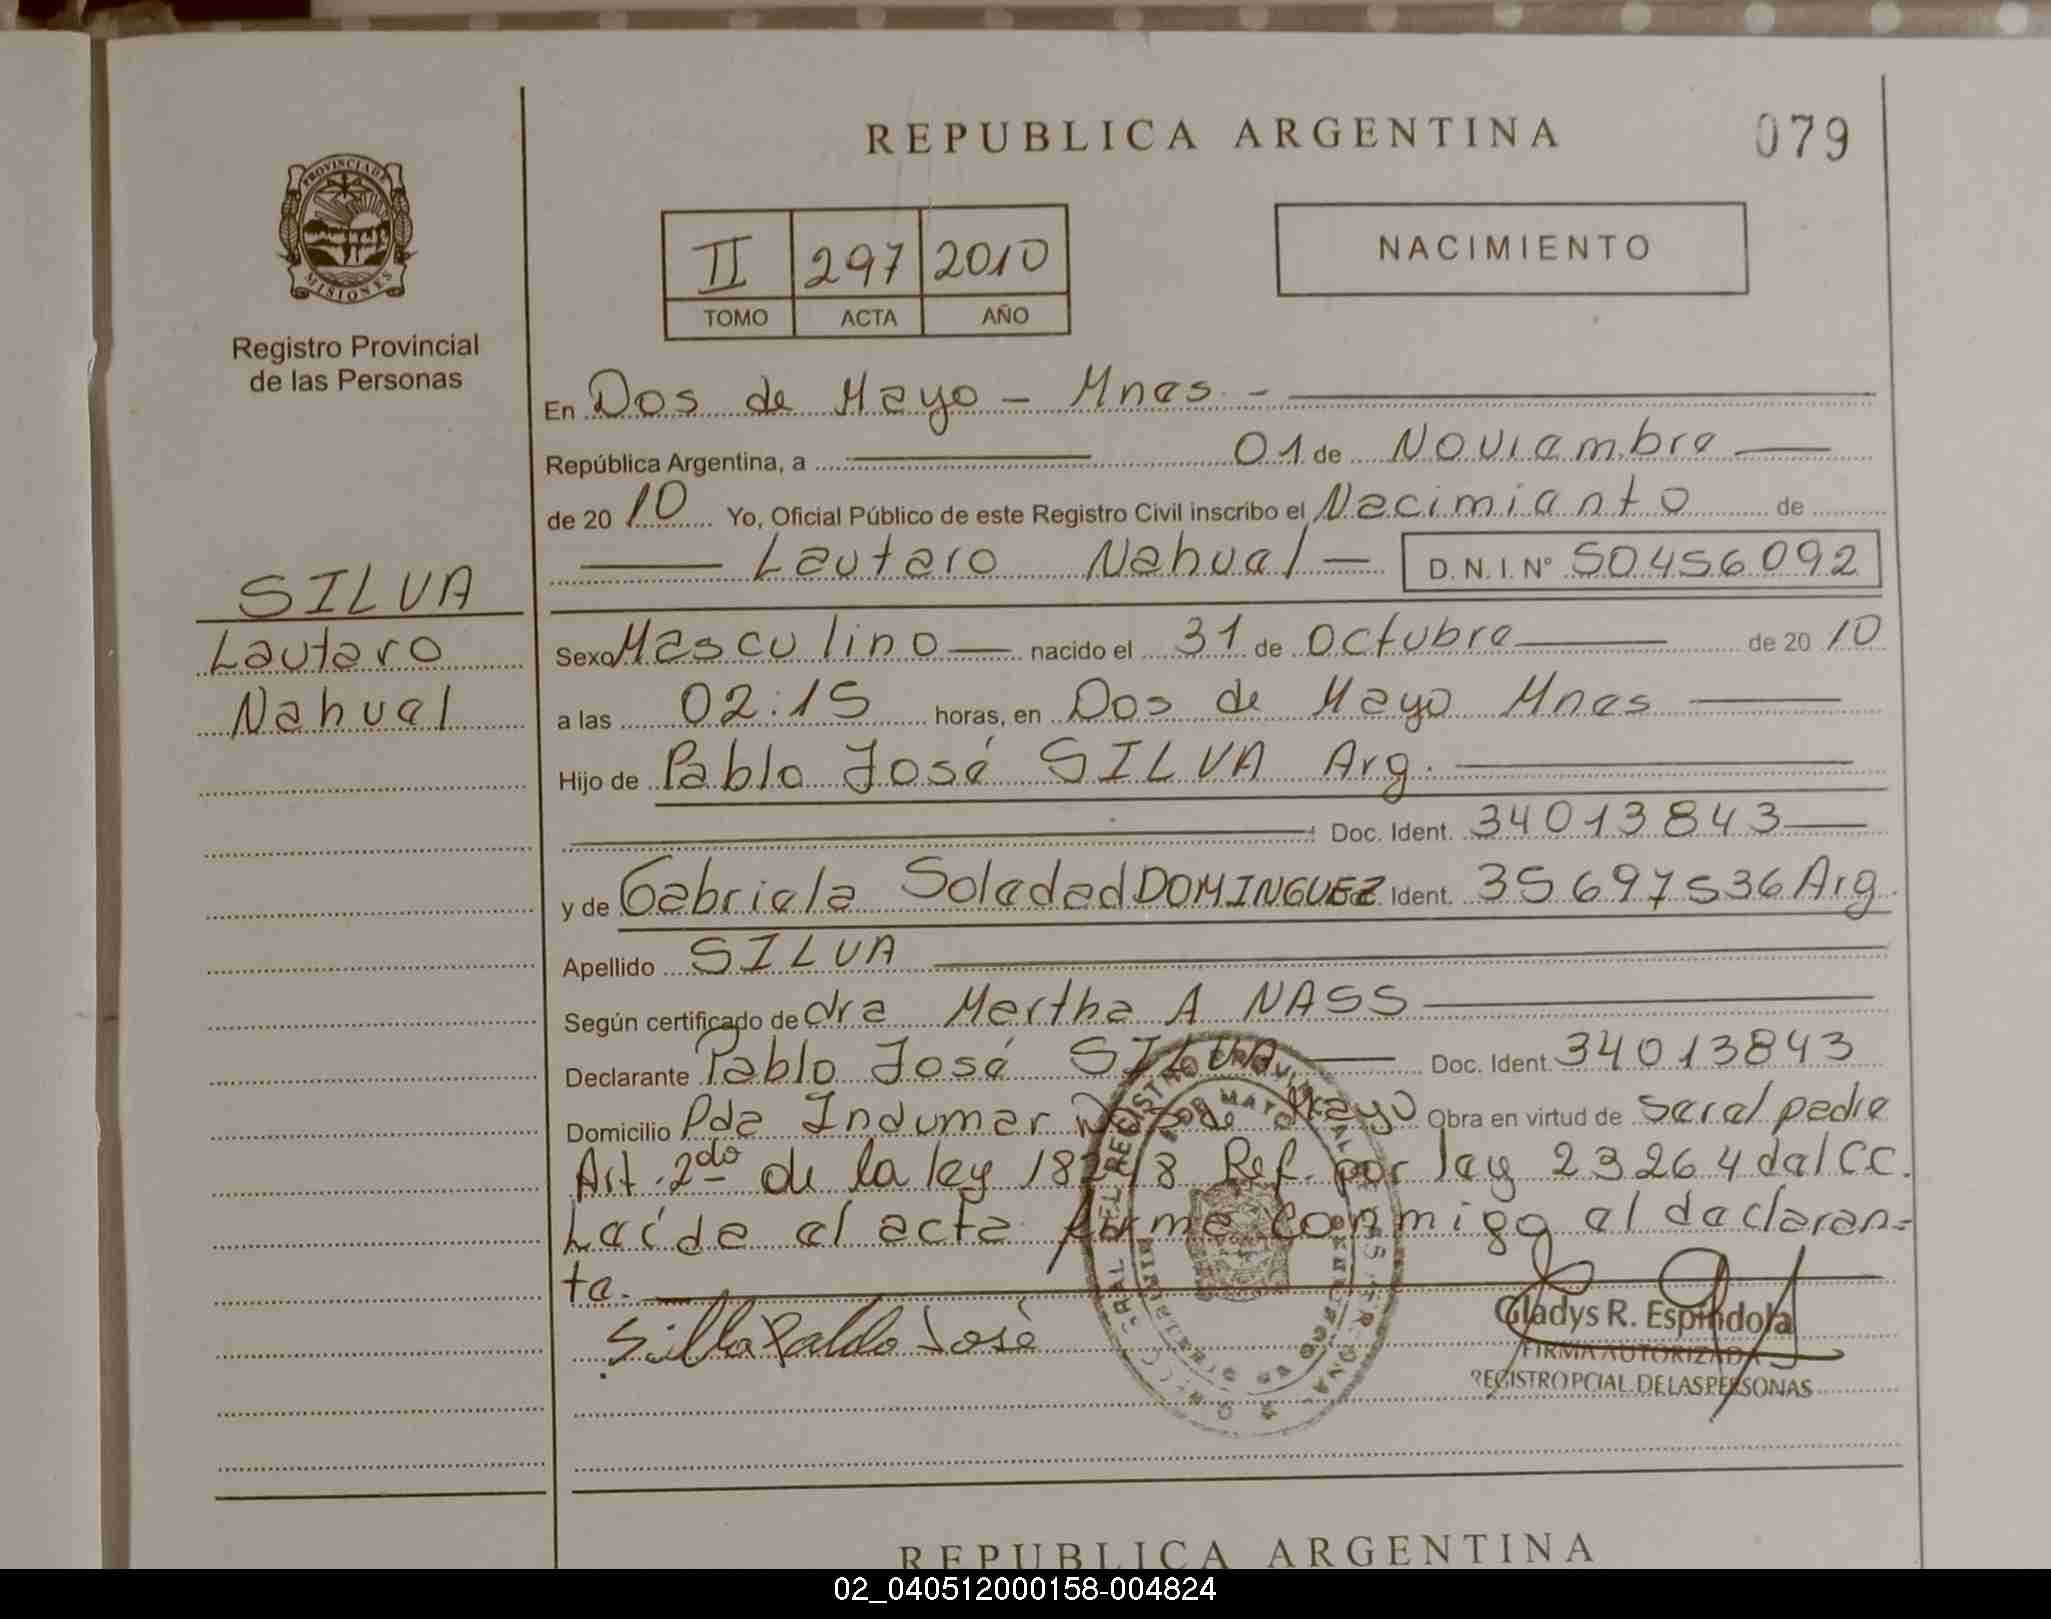 REPUBLICA ARGENTINA
079
PROVINCIA DE
MISIONES
Registro Provincial
de las Personas
II 297 2010
TOMO ACTA AÑO
NACIMIENTO
En Dos de Mayo - Mnes. -
República Argentina, a 01 de Noviembre
de 20 10 Yo, Oficial Público de este Registro Civil inscribo el Nacimiento de
Lautaro Nahuel D.N.I. Nº 50456092
SILVA
Lautaro
Nahuel
Sexo Masculino nacido el 31 de Octubre de 20 10
a las 02:15 horas, en Dos de Mayo Mnes
Hijo de Pablo José SILVA Arg.
Doc. Ident. 34013843
y de Gabriela Soledad DOMINGUEZ Ident. 35697536 Arg.
Apellido SILVA
Según certificado de dra Martha A NASS
Declarante Pablo José SILVA Doc. Ident. 34013843
Domicilio Pda Indumar Dos de Mayo Obra en virtud de ser el padre
Art. 2do de la ley 18248 Ref. por ley 23264 del C.C.
Leída el acta firma conmigo el declaran=
te.
Silva Pablo José
Gladys R. Espindola
FIRMA AUTORIZADA
REGISTRO PCIAL. DE LAS PERSONAS
REPUBLICA ARGENTINA
02_040512000158-004824